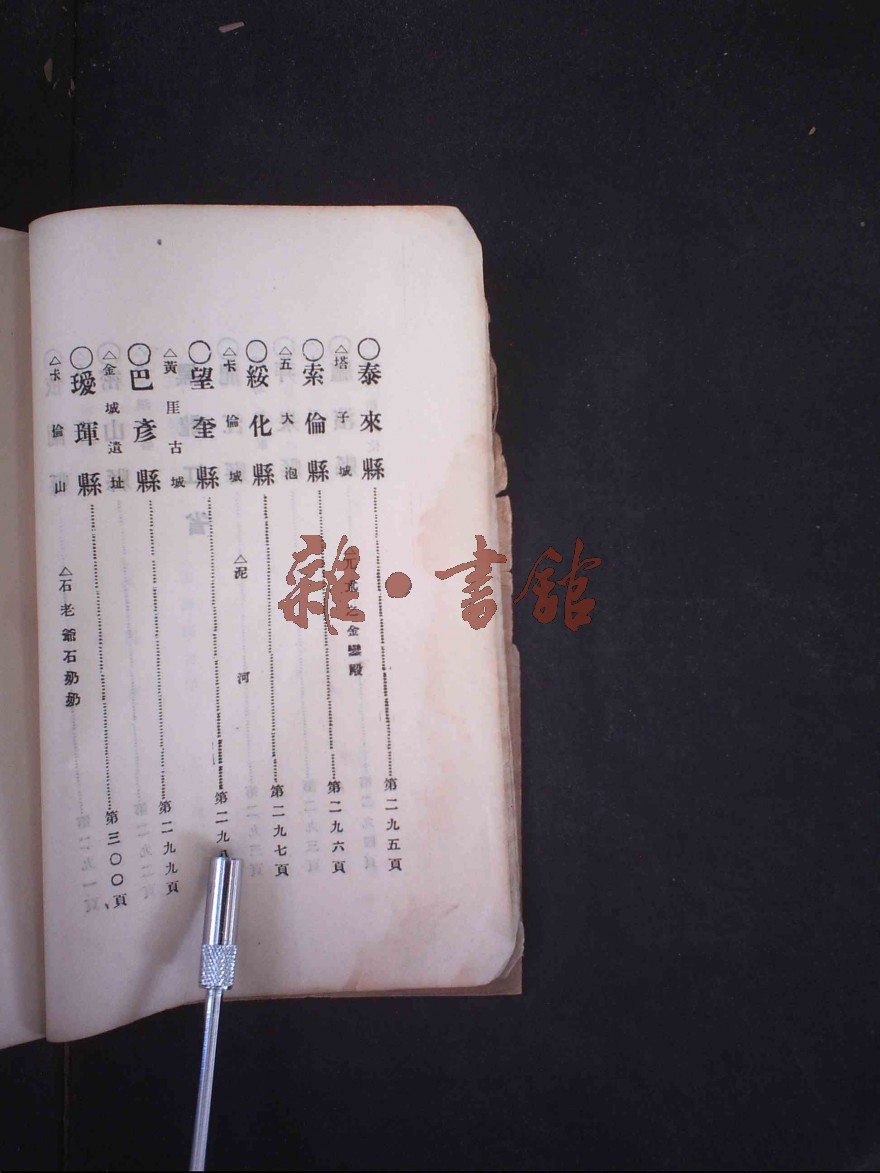 ○泰來縣……第二九五頁
△塔子城 △元 金鑾殿
○索倫縣……第二九六頁
△五大泡
○綏化縣……第二九七頁
△卡倫城 △泥河
○望奎縣……第二九
△黃厓古城
○巴彥縣……第二九九頁
△金城遺址
○璦琿縣……第三〇〇頁
△卡倫山 △石老爺石奶奶
雜·書館